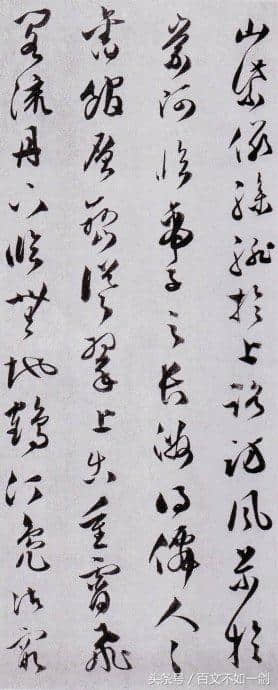 山紫儼驂騑於上路訪風景於
崇阿臨帝子之長洲得僊人之
舊館層巒聳翠上出重霄飛
閣流丹下臨無地鶴汀鳧渚窮
头条号 / 百文不如一剑